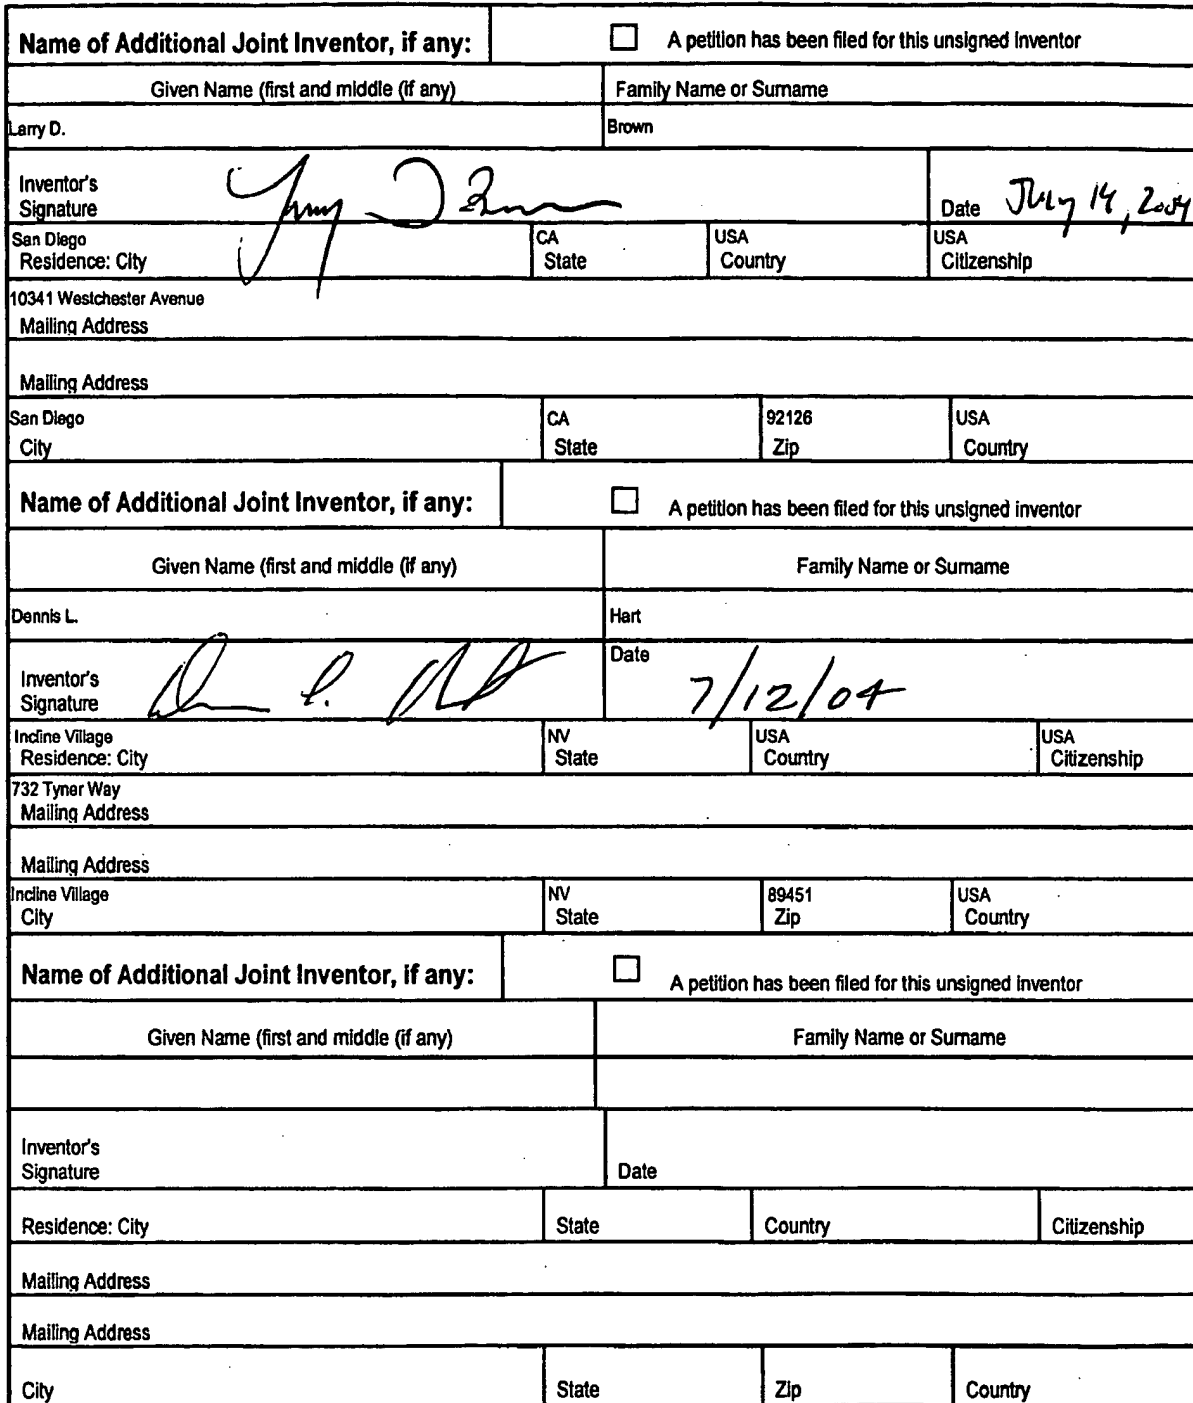 Name of Additional Joint Inventor, if any: A petition has been filed for this unsigned inventor
Given Name (first and middle (if any) Family Name or Surname
Larry D. Brown
Inventor's
Signature Date July 14, 2004
San Diego CA USA USA
Residence: City State Country Citizenship
10341 Westchester Avenue
Mailing Address
Mailing Address
San Diego CA 92126 USA
City State Zip Country
Name of Additional Joint Inventor, if any: A petition has been filed for this unsigned inventor
Given Name (first and middle (if any) Family Name or Surname
Dennis L. Hart
Date
Inventor's
Signature 7/12/04
Incline Village NV USA USA
Residence: City State Country Citizenship
732 Tyner Way
Mailing Address
Mailing Address
Incline Village NV 89451 USA
City State Zip Country
Name of Additional Joint Inventor, if any: A petition has been filed for this unsigned inventor
Given Name (first and middle (if any) Family Name or Surname
Inventor's
Signature Date
Residence: City State Country Citizenship
Mailing Address
Mailing Address
City State Zip Country